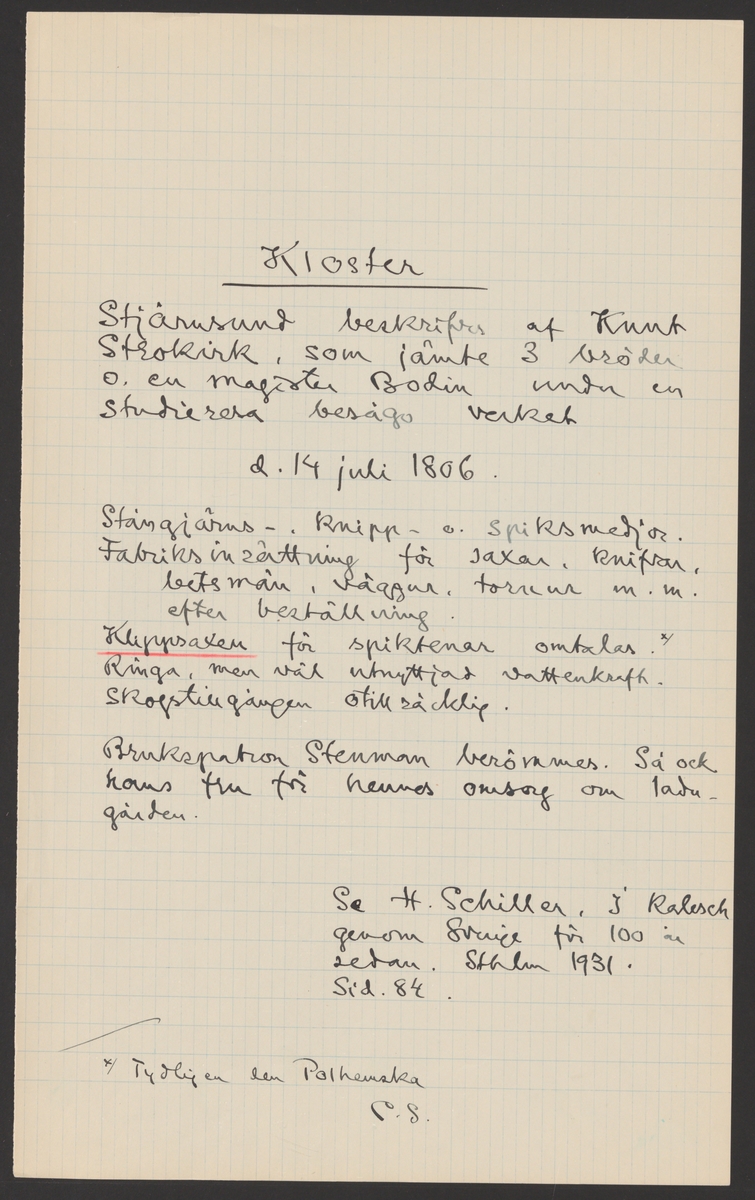 Kloster
Stjärnsund beskrifves af Knut
Strokirk, som jämte 3 bröder
o. en magister Bodin under en
studieresa besågo verket
d. 14 juli 1806.
Stångjärns-, knipp- o. spiksmedjor.
Fabriksinrättning för saxar, knifvar,
betsmän, väggur, tornur m. m.
efter beställning.
Klippsaxen för spiktenar omtalas. x/
Ringa, men väl utnyttjad vattenkraft.
Skogstillgången otillräcklig.
Brukspatron Stenman berömmes. Så ock
hans fru för hennes omsorg om ladu-
gården.
Se H. Schiller, I kalesch
genom Sverige för 100 år
sedan. Sthlm 1931.
Sid. 84.
x/ Tydligen den Polhemska
P. S.